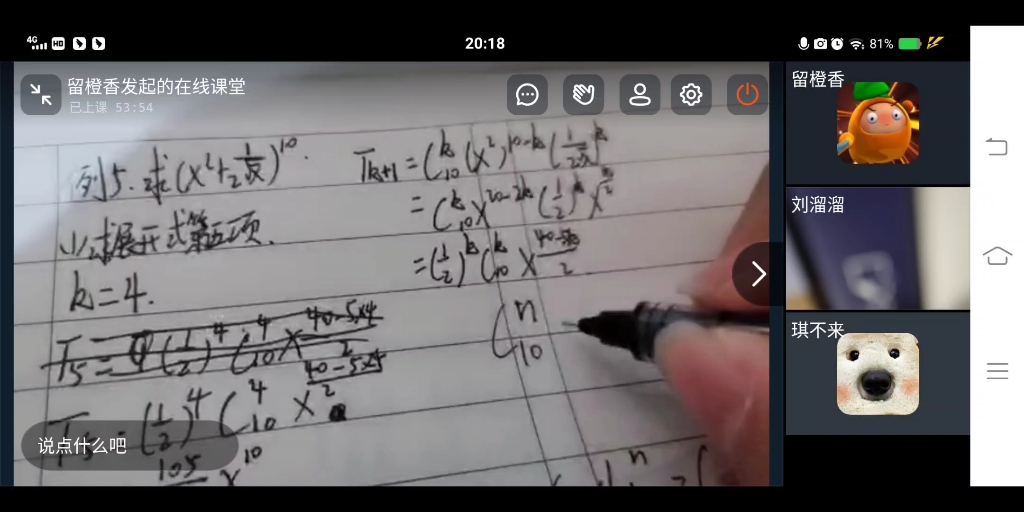 4G HD
20:18
81%
留橙香发起的在线课堂
已上课 53:54
例5.求(x²+1/(2√x))¹⁰.
(1)求展开式第五项.
k=4.
T₅=(1/2)⁴C₁₀⁴x^((40-5×4)/2)
T₅=(1/2)⁴C₁₀⁴x^((40-5×4)/2)
105 x¹⁰
Tₖ₊₁=C₁₀ᵏ(x²)¹⁰⁻ᵏ(1/(2√x))ᵏ
=C₁₀ᵏx²⁰⁻²ᵏ(1/2)ᵏx
=(1/2)ᵏC₁₀ᵏx^((40-5k)/2)
C₁₀ⁿ
n
说点什么吧
留橙香
刘溜溜
琪不来